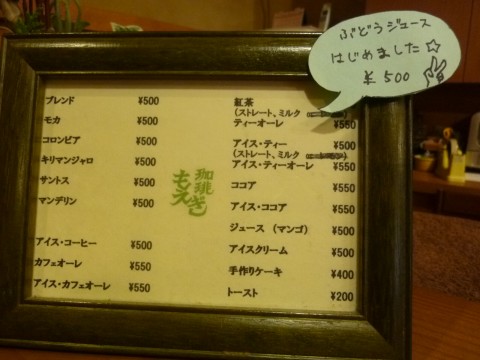 ぶどうジュース
はじめました☆
¥500
ブレンド ¥500
モカ ¥500
コロンビア ¥500
キリマンジャロ ¥500
サントス ¥500
マンデリン ¥500
アイス・コーヒー ¥500
カフェオーレ ¥550
アイス・カフェオーレ ¥550
珈琲
紅茶
(ストレート、ミルク
ティーオーレ ¥550
アイス・ティー ¥500
(ストレート、ミルク
アイス・ティーオーレ ¥550
ココア ¥550
アイス・ココア ¥550
ジュース (マンゴ) ¥500
アイスクリーム ¥500
手作りケーキ ¥400
トースト ¥200